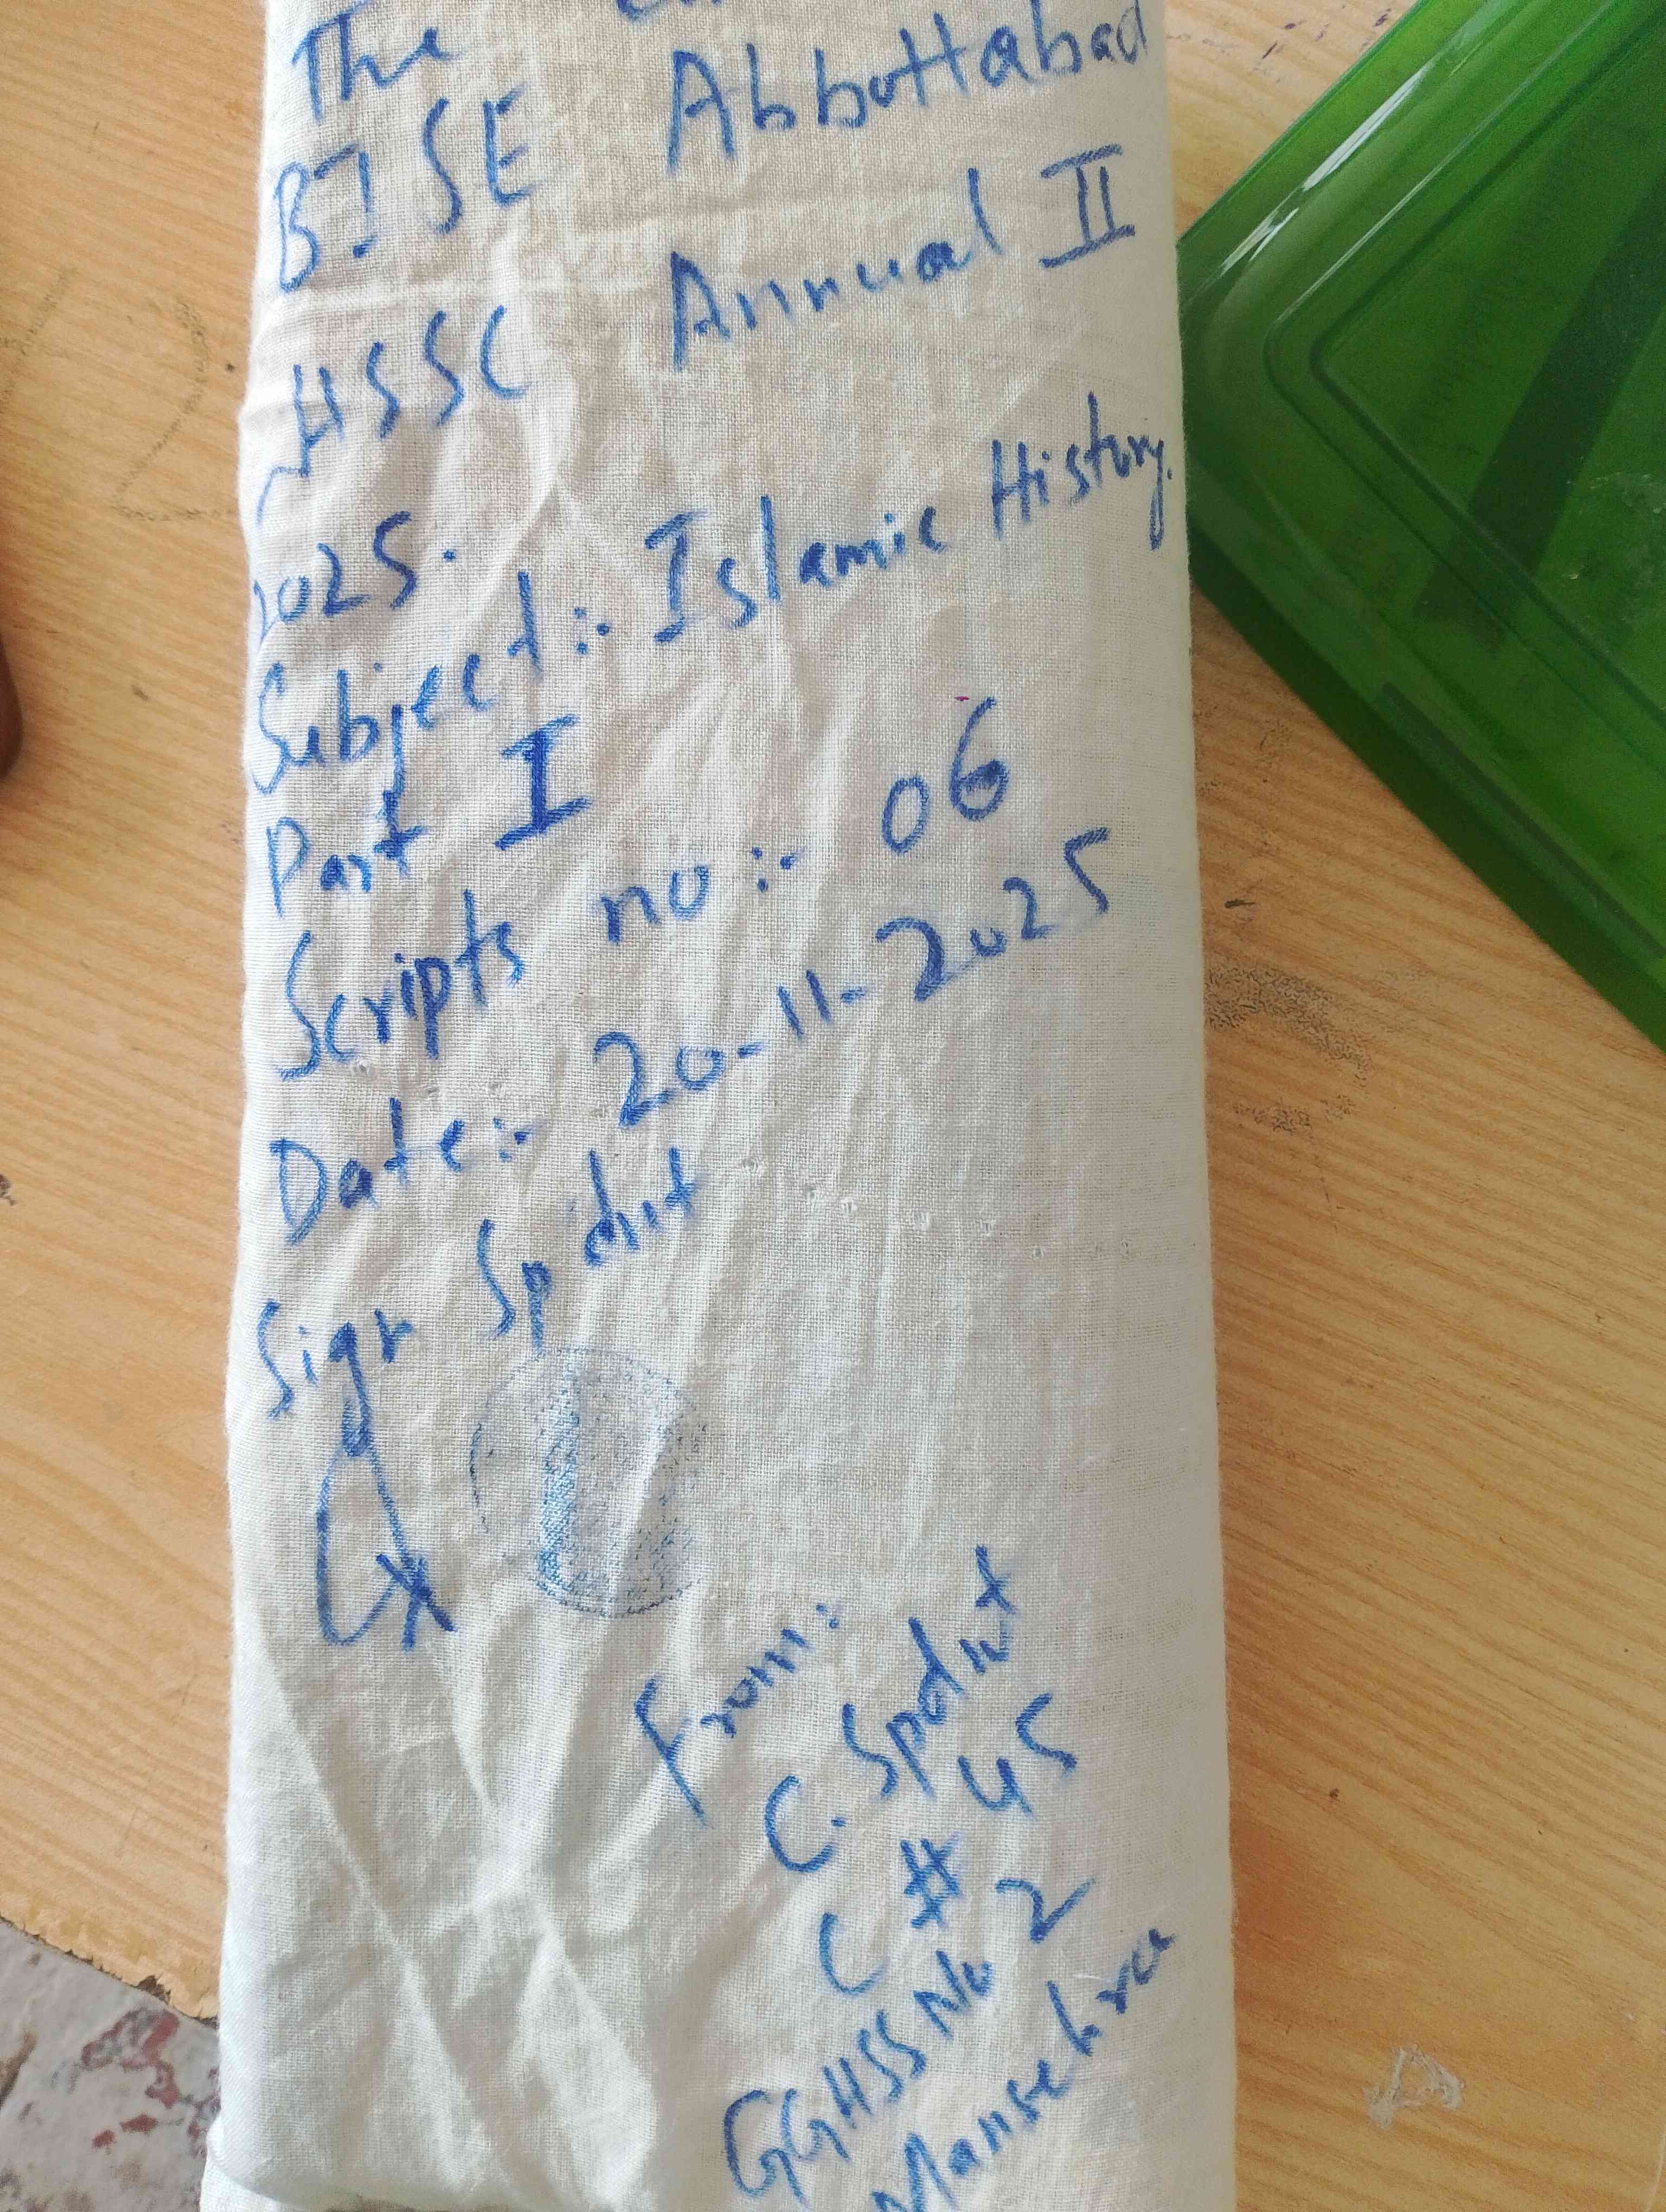 The
BISE Abbottabad
HSSC Annual II
2025.
Subject:- Islamic History.
Part I
Scripts no:- 06
Date:- 20-11-2025
Sign Spdnt
From:
C. Spdnt
C # 45
GGHSS No 2
Mansehra